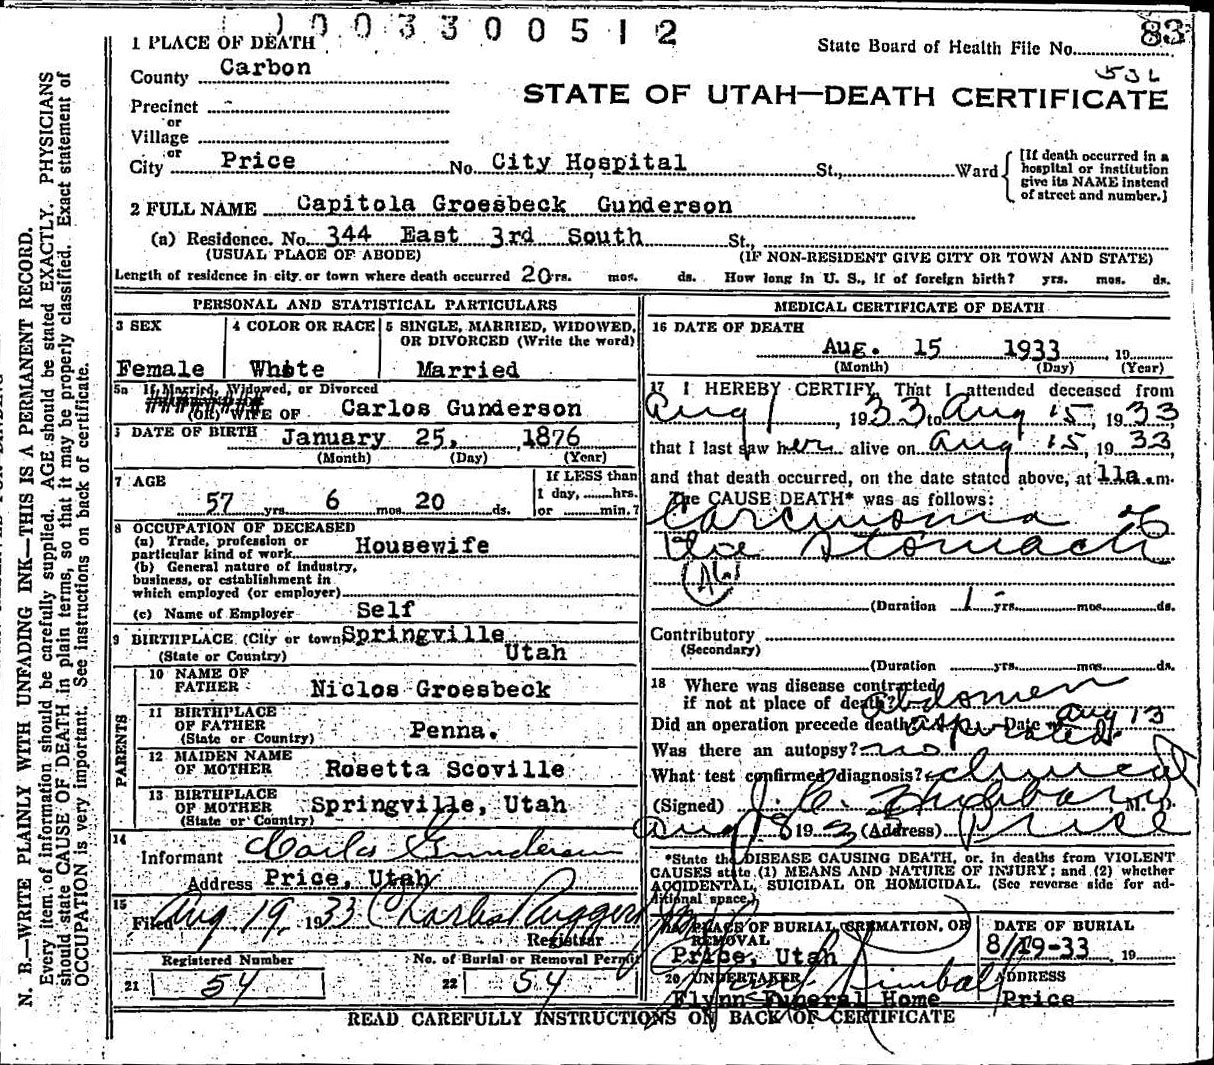 003300512
83
1 PLACE OF DEATH
State Board of Health File No.
County Carbon
STATE OF UTAH—DEATH CERTIFICATE
Precinct -
or
Village
or
City Price No. City Hospital St., Ward [If death occurred in a hospital or institution give its NAME instead of street and number.]
2 FULL NAME Capitola Groesbeck Gunderson
(a) Residence. No. 344 East 3rd South St.,
(USUAL PLACE OF ABODE) (IF NON-RESIDENT GIVE CITY OR TOWN AND STATE)
Length of residence in city or town where death occurred 20 yrs. mos. ds. How long in U. S., if of foreign birth? yrs. mos. ds.
PERSONAL AND STATISTICAL PARTICULARS
3 SEX
Female
4 COLOR OR RACE
White
5 SINGLE, MARRIED, WIDOWED, OR DIVORCED (Write the word)
Married
5a If Married, Widowed, or Divorced
(OR) WIFE OF Carlos Gunderson
DATE OF BIRTH January 25, 1876
(Month) (Day) (Year)
7 AGE
57 yrs. 6 mos. 20 ds.
If LESS than
1 day, hrs.
or min.?
8 OCCUPATION OF DECEASED
(a) Trade, profession or
particular kind of work Housewife
(b) General nature of industry,
business, or establishment in
which employed (or employer)
(c) Name of Employer Self
9 BIRTHPLACE (City or town Springville
(State or Country) Utah
PARENTS
10 NAME OF
FATHER Niclos Groesbeck
11 BIRTHPLACE
OF FATHER Penna.
(State or Country)
12 MAIDEN NAME
OF MOTHER Rosetta Scoville
13 BIRTHPLACE
OF MOTHER Springville, Utah
(State or Country)
14
Informant Carlos Gunderson
Address Price, Utah
15
Filed Aug 19, 1933
Registrar
Registered Number
21 54
No. of Burial or Removal Permit
22 54
MEDICAL CERTIFICATE OF DEATH
16 DATE OF DEATH
Aug. 15 1933, 19
(Month) (Day) (Year)
17 I HEREBY CERTIFY, That I attended deceased from
Aug 1, 1933 to Aug 15, 1933,
that I last saw her alive on Aug 15, 1933,
and that death occurred, on the date stated above, at 11a.m.
The CAUSE DEATH* was as follows:
Carcinoma of
the Stomach
(Duration 1 yrs. mos. ds.
Contributory
(Secondary)
(Duration yrs. mos. ds.
18 Where was disease contracted
if not at place of death? abdomen
Did an operation precede death? aspirated Date Aug 13
Was there an autopsy? no
What test confirmed diagnosis? clinical
(Signed) J. C. Hubbard M. D.
Aug 18 1933 (Address) Price
*State the DISEASE CAUSING DEATH, or, in deaths from VIOLENT
CAUSES state (1) MEANS AND NATURE OF INJURY; and (2) whether
ACCIDENTAL, SUICIDAL OR HOMICIDAL. (See reverse side for ad-
ditional space.)
PLACE OF BURIAL, CREMATION, OR
REMOVAL
Price, Utah
DATE OF BURIAL
8/19-33, 19
20 UNDERTAKER
Flynn Funeral Home
ADDRESS
Price
READ CAREFULLY INSTRUCTIONS ON BACK OF CERTIFICATE
N. B.—WRITE PLAINLY WITH UNFADING INK—THIS IS A PERMANENT RECORD.
Every item of information should be carefully supplied. AGE should be stated EXACTLY. PHYSICIANS
should state CAUSE OF DEATH in plain terms, so that it may be properly classified. Exact statement of
OCCUPATION is very important. See instructions on back of certificate.